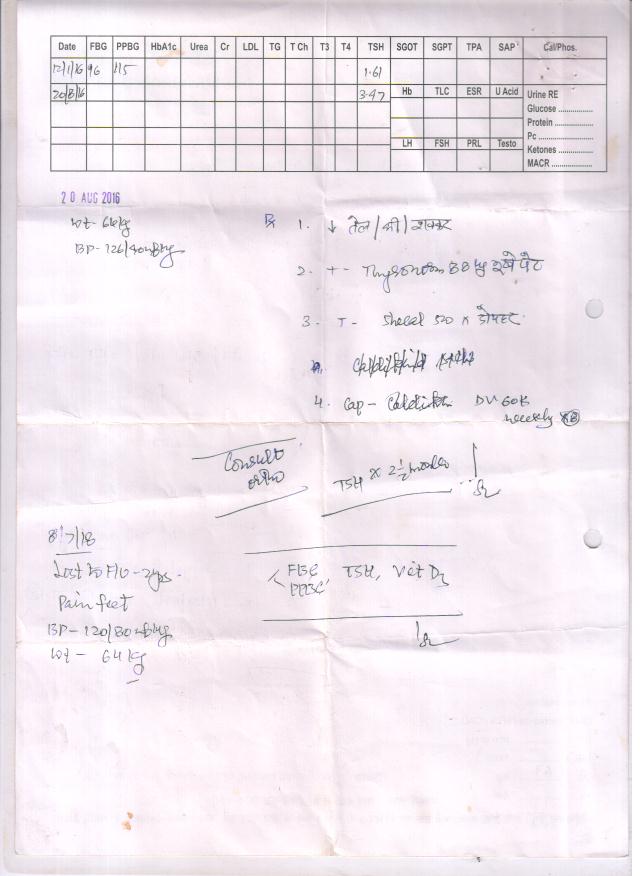 Date FBG PPBG HbA1c Urea Cr LDL TG T Ch T3 T4 TSH SGOT SGPT TPA SAP Cal/Phos.
12/1/16 96 115 1.61
20/8/16 3.47 Hb TLC ESR U Acid Urine RE
Glucose ................
Protein ................
Pc ................
LH FSH PRL Testo Ketones ................
MACR ................
20 AUG 2016
BP-126/
1. ↓ तेल / घी / शक्कर
2. T-
3. T- Shelcal 500 x
4. Cap- 60K
weekly
Consult
ortho
TSH x 2 1/2
8/7/18
Lost to F/U - 2yrs.
Pain feet
BP-120/80 mmHg
wt - 64 kg
FBG TSH, Vit D3
PPBG